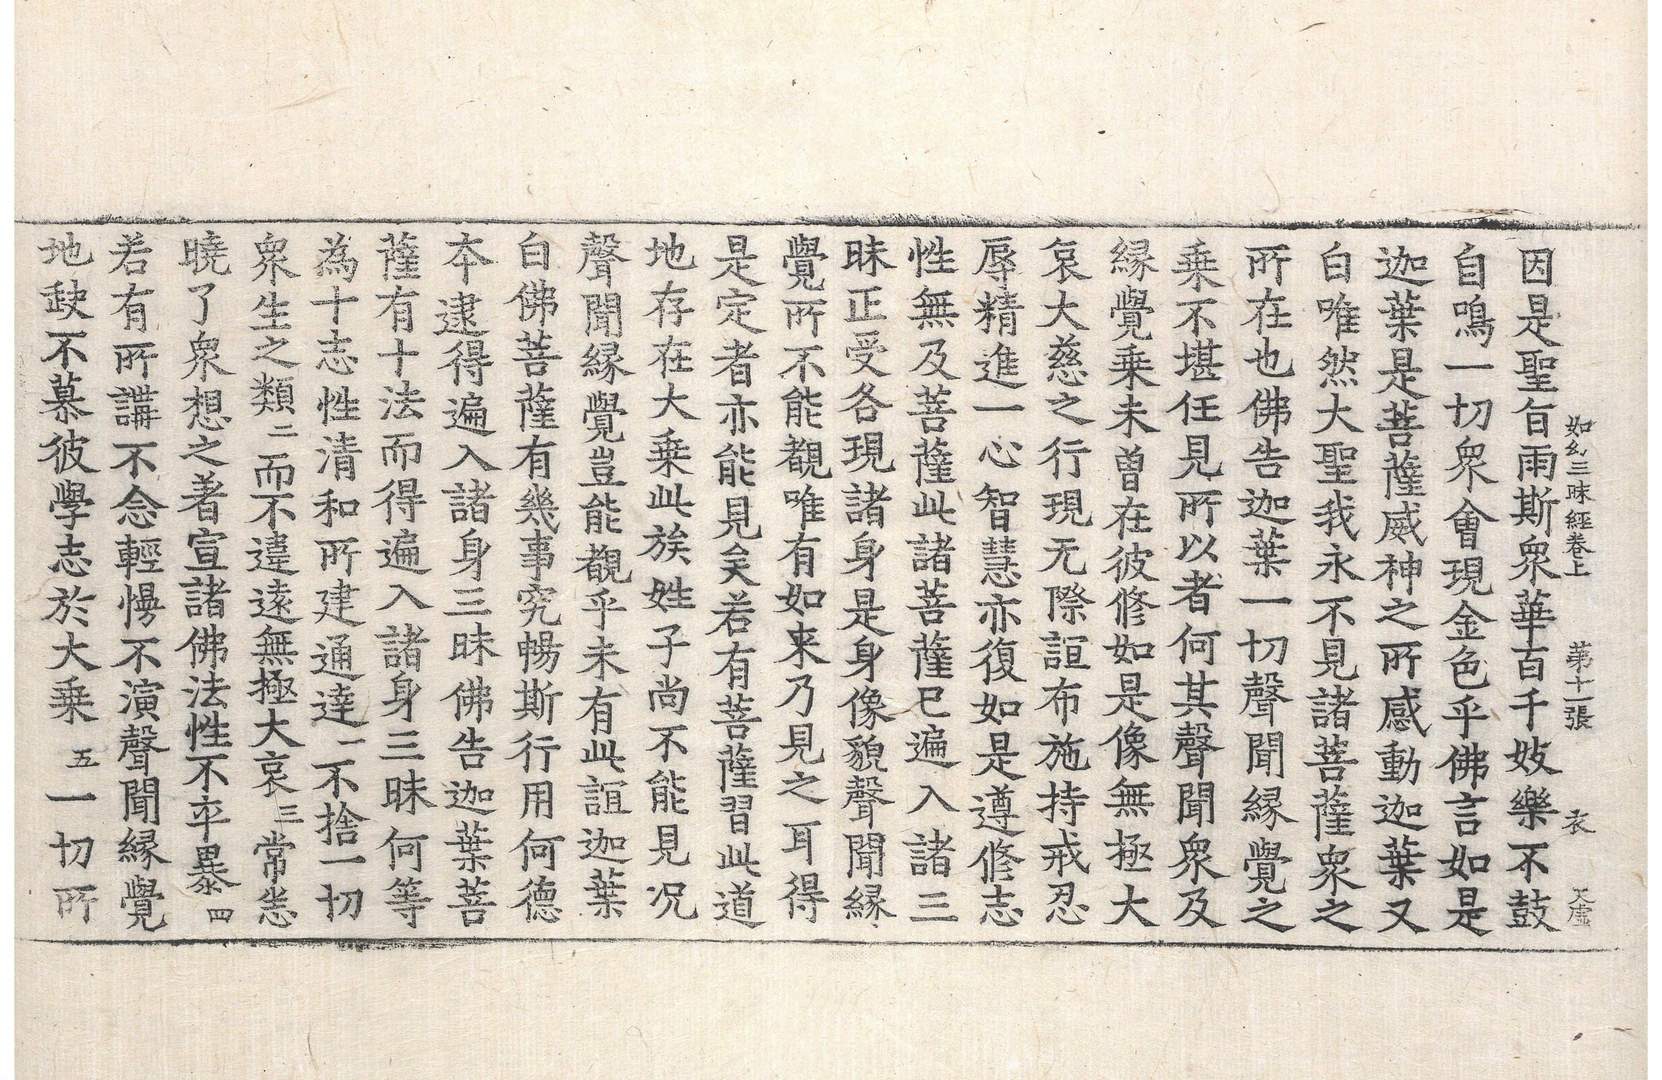 如幻三昧經卷上 第十一張 衣 天虛
因是聖旨雨斯衆華百千妓樂不鼓
自鳴一切衆會現金色乎佛言如是
迦葉是菩薩威神之所感動迦葉又
白唯然大聖我永不見諸菩薩衆之
所在也佛告迦葉一切聲聞緣覺之
乗不堪任見所以者何其聲聞衆及
緣覺乗未曽在彼修如是像無極大
哀大慈之行現无際誼布施持戒忍
辱精進一心智慧亦復如是遵修志
性無及菩薩此諸菩薩已遍入諸三
昧正受各現諸身是身像貌聲聞緣
覺所不能覩唯有如来乃見之耳得
是定者亦能見矣若有菩薩習此道
地存在大乗此族姓子尚不能見况
聲聞緣覺豈能覩乎未有此誼迦葉
白佛菩薩有幾事究暢斯行用何德
夲逮得遍入諸身三昧佛告迦葉菩
薩有十法而得遍入諸身三昧何等
為十志性清和所建通達一不捨一切
衆生之類二而不違遠無極大哀三常恙
曉了衆想之著宣諸佛法性不卒暴四
若有所講不念輕慢不演聲聞緣覺
地䟽不慕彼學志於大乗五一切所